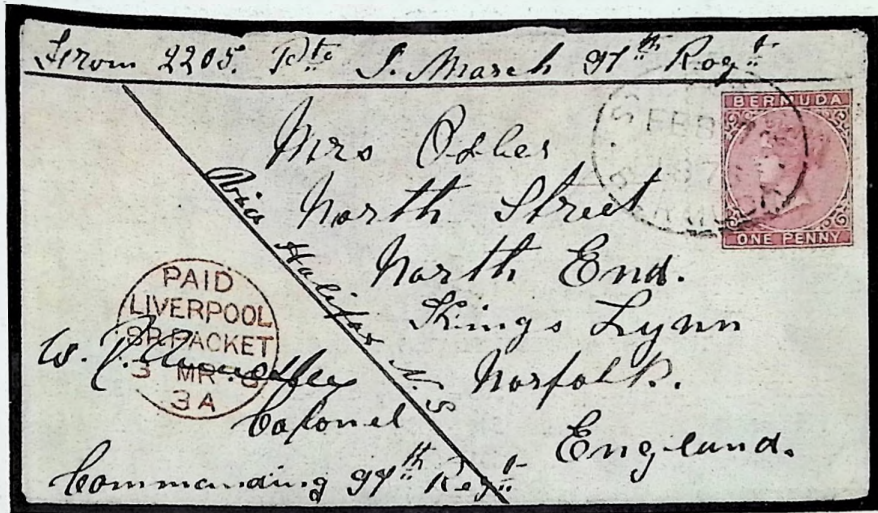 From 2205. Pte J. March 97th Regt
BERMUDA
ONE PENNY
FEB
Mrs
North Street
North End.
Kings Lynn
Norfolk.
England.
Via Halifax N.S
PAID
LIVERPOOL
BR.PACKET
3 MR 8
3A
W.
Colonel
Commanding 97th Regt